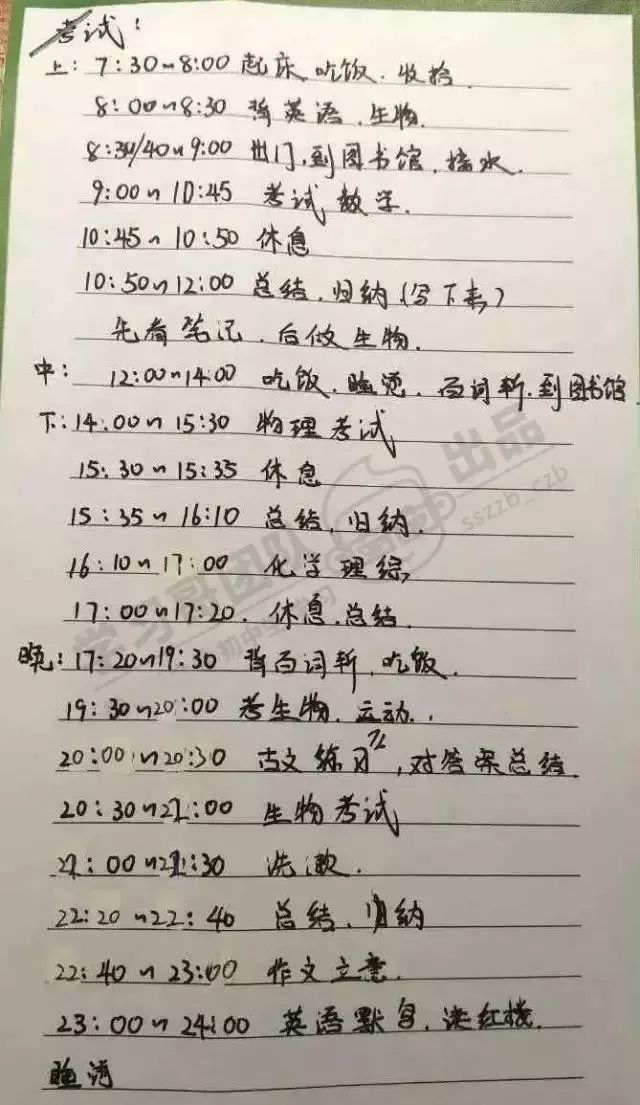 考试:
上: 7:30~8:00 起床 吃饭. 收拾.
8:00~8:30 背英语. 生物.
8:30/40~9:00 出门, 到图书馆, 接水.
9:00~10:45 考试数学.
10:45~10:50 休息
10:50~12:00 总结. 归纳 (写下来)
先看笔记. 后做生物.
中: 12:00~14:00 吃饭. 睡觉. 百词斩. 到图书馆
下: 14:00~15:30 物理考试
15:30~15:35 休息
15:35~16:10 总结, 归纳.
16:10~17:00 化学理综,
17:00~17:20. 休息. 总结.
晚: 17:20~19:30 背百词斩, 吃饭.
19:30~20:00 考生物. 运动.
20:00~20:30 古文练习, 对答案总结.
20:30~21:00 生物考试
21:00~21:30 洗漱.
22:20~22:40 总结. 归纳
22:40~23:00 作文立意.
23:00~24:00 英语默写. 读红楼.
睡觉
学习哥团队 出品
初中生学习 sszzb_czb